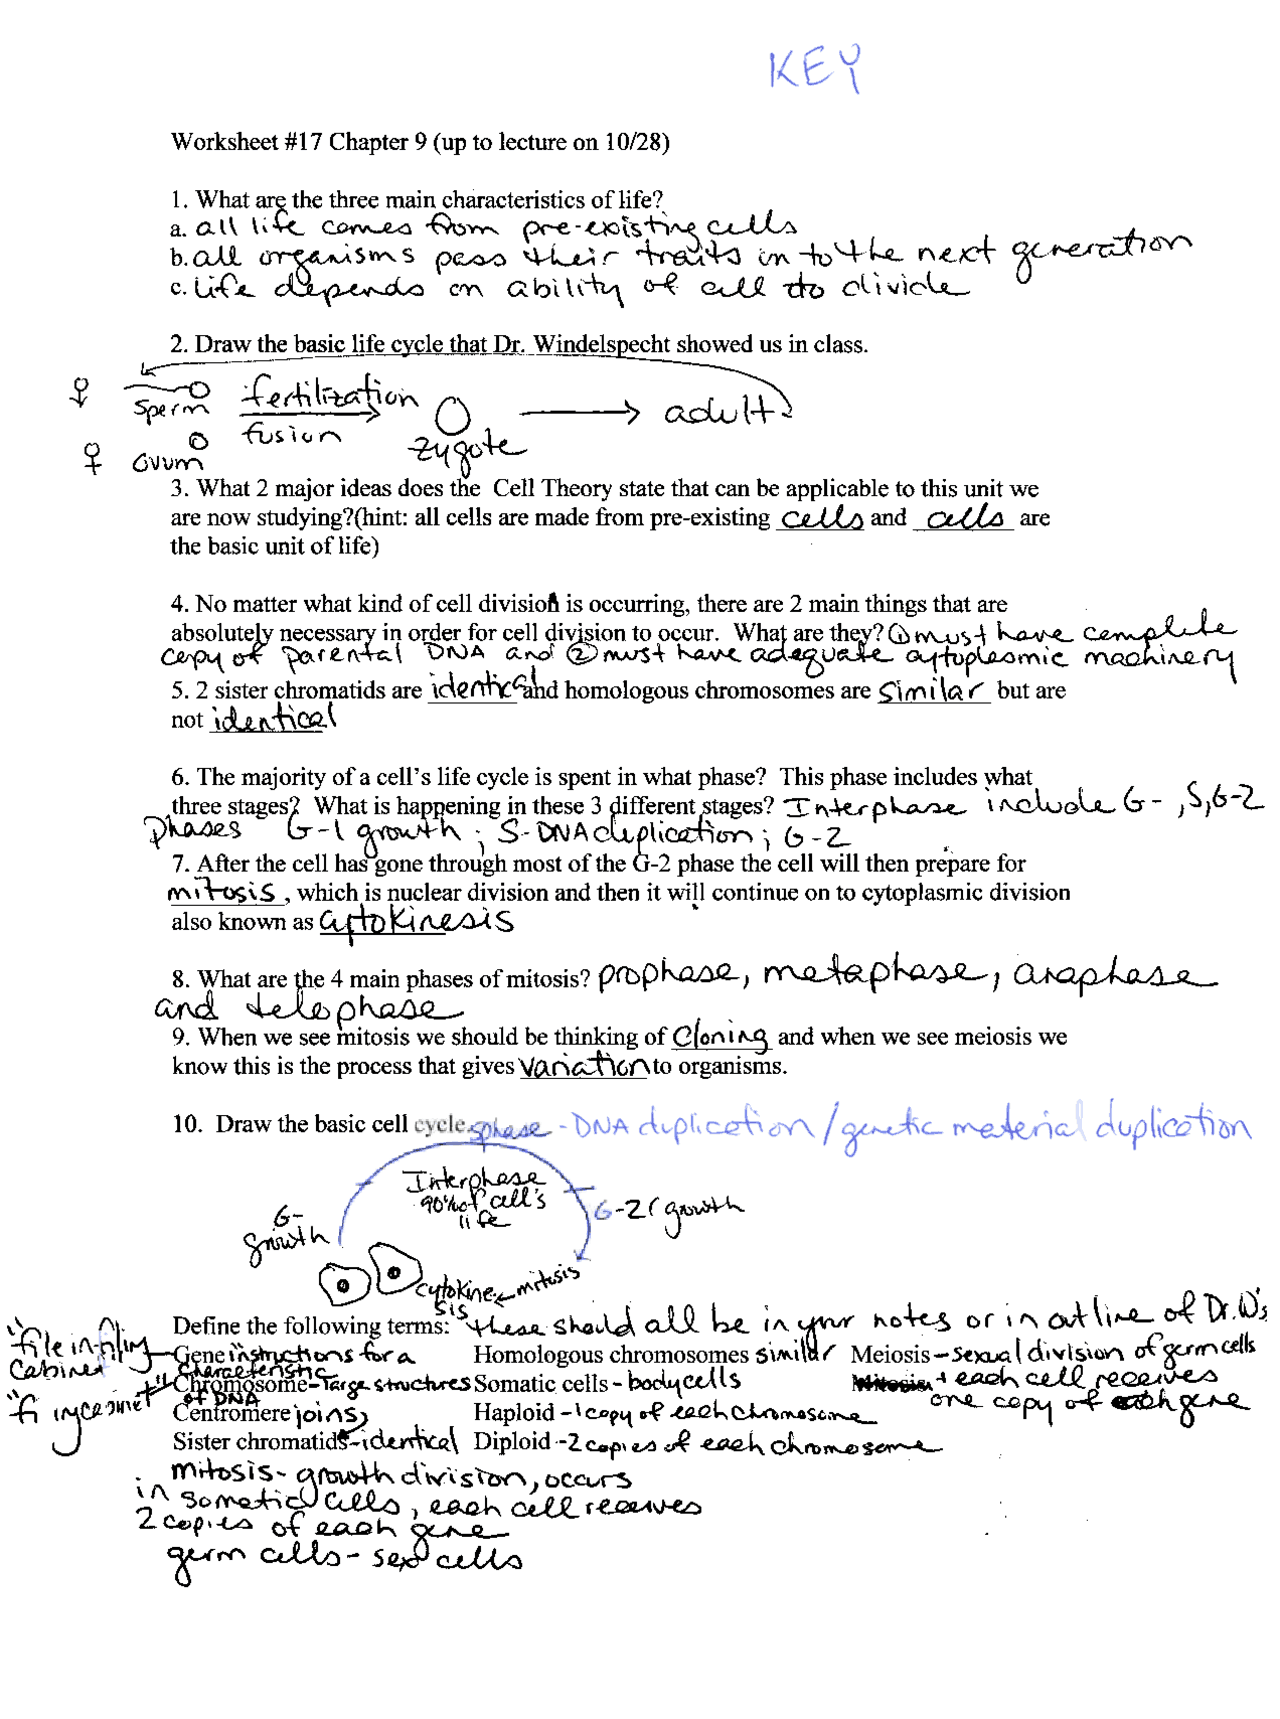 KEY
Worksheet #17 Chapter 9 (up to lecture on 10/28)
1. What are the three main characteristics of life?
a. all life comes from pre-existing cells
b. all organisms pass their traits in to the next generation
c. life depends on ability of cell to divide
2. Draw the basic life cycle that Dr. Windelspecht showed us in class.
♀ sperm fertilization
fusion
zygote
adult
♀ ovum
3. What 2 major ideas does the Cell Theory state that can be applicable to this unit we
are now studying?(hint: all cells are made from pre-existing cells and cells are
the basic unit of life)
4. No matter what kind of cell division is occurring, there are 2 main things that are
absolutely necessary in order for cell division to occur. What are they? ① must have complete
copy of parental DNA and ② must have adequate cytoplasmic machinery
5. 2 sister chromatids are identical and homologous chromosomes are similar but are
not identical
6. The majority of a cell's life cycle is spent in what phase? This phase includes what
three stages? What is happening in these 3 different stages? Interphase include G- , S, G-2
phases G-1 growth ; S-DNA duplication ; G-2
7. After the cell has gone through most of the G-2 phase the cell will then prepare for
mitosis, which is nuclear division and then it will continue on to cytoplasmic division
also known as cytokinesis
8. What are the 4 main phases of mitosis? prophase, metaphase, anaphase
and telophase
9. When we see mitosis we should be thinking of cloning and when we see meiosis we
know this is the process that gives variation to organisms.
10. Draw the basic cell cycle. Sphase - DNA duplication / genetic material duplication
Interphase
90% of cell's
life
G-
growth
G-2 ( growth
mitosis
cytokine
sis
Define the following terms: these should all be in your notes or in outline of Dr. W's
"file in filing
cabinet"
Gene instructions for a
characteristic
Homologous chromosomes similar
Meiosis - sexual division of germ cells
+ each cell receives
one copy of each gene
Chromosome - large structures
of DNA
Somatic cells - body cells
Centromere joins
Haploid - 1 copy of each chromosome
Sister chromatids - identical
Diploid - 2 copies of each chromosome
mitosis - growth division, occurs
in somatic cells, each cell receives
2 copies of each gene
germ cells - sex cells